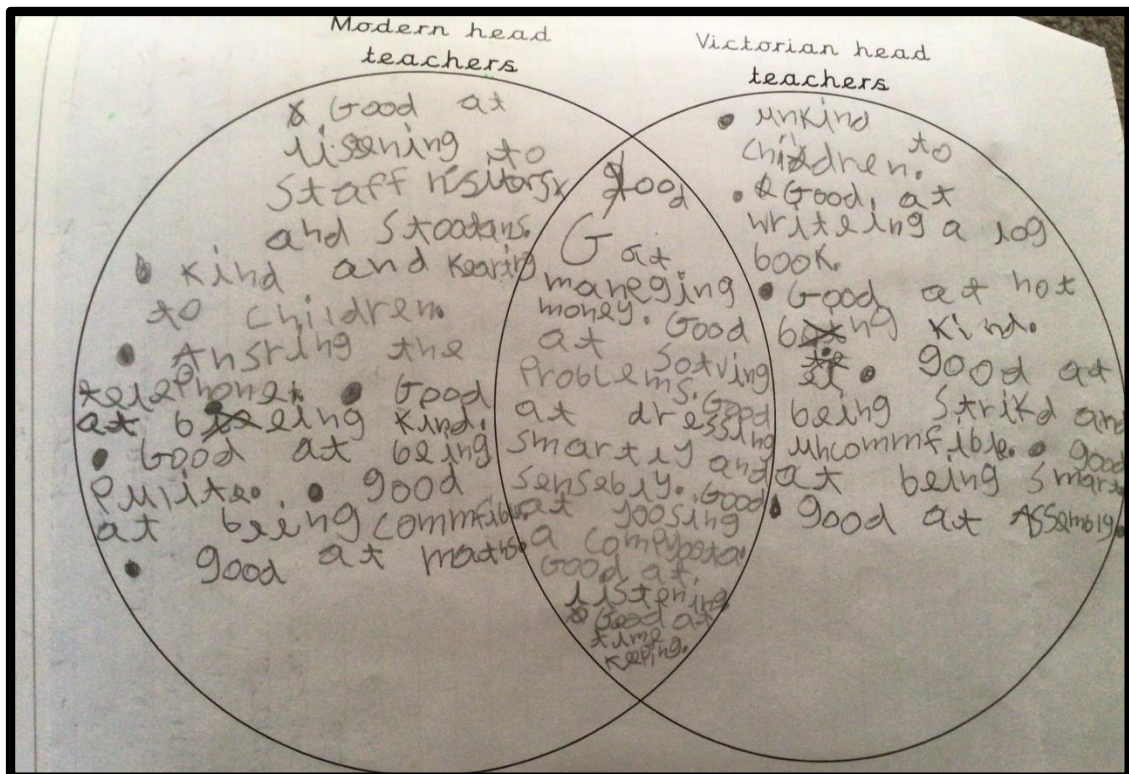 Modern head
teachers
Good at
lisening to
staff visitors
and stootans.
kind and kearing
to children.
Ansring the
telephone. Good
at being kind.
Good at being
pulite. good
at being commfible
good at maths.
good
G at
maneging
money. Good
at solving
problems. Good
at dressing
smartly and
sensebly. Good
at yoosing
a compyoota.
Good at
listening
Good at
time
keeping.
Victorian head
teachers
unkind
to
children.
Good at
writeing a log
book.
Good at not
being kind.
good at
being strikd and
uncommfible. good
at being smart
good at Assembly.